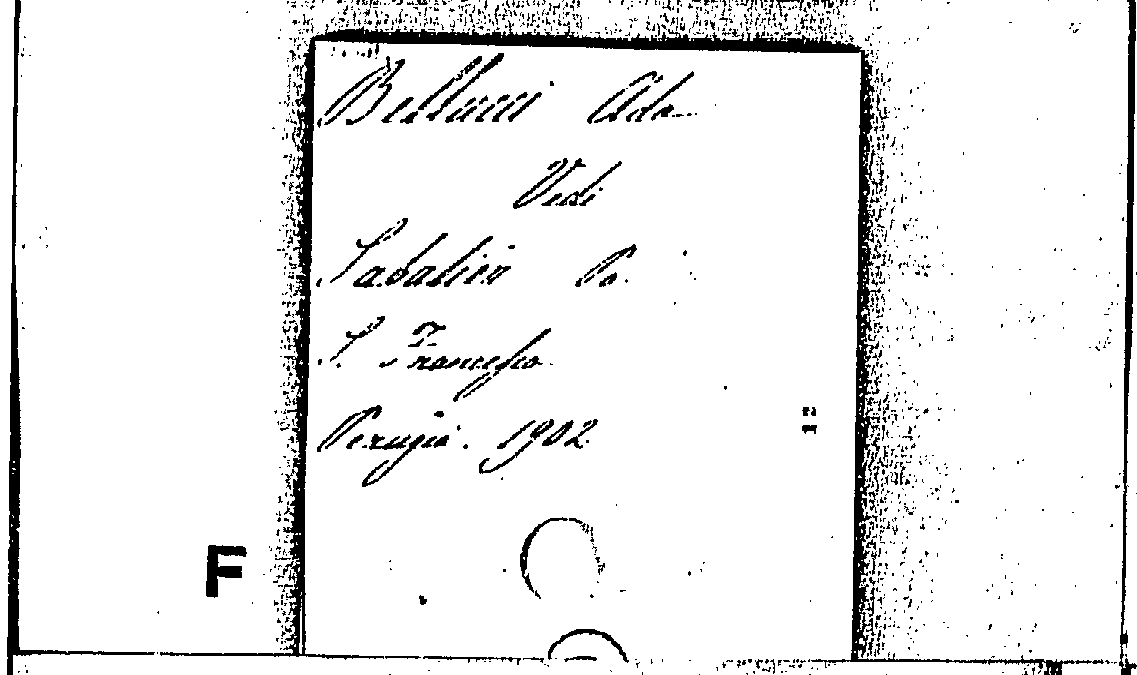 Bellucci Ada
Vedi
Sabatier Po.
S. Francesco
Perugia. 1902
F